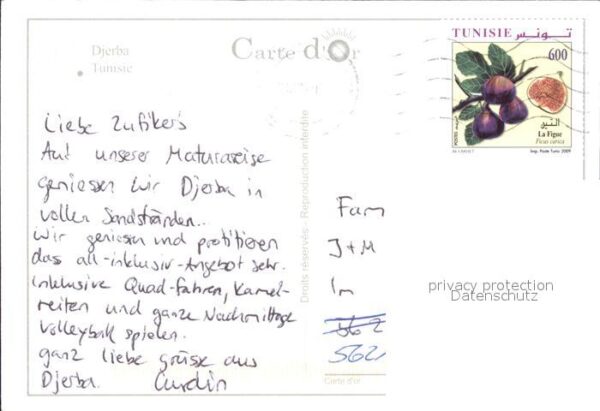 Djerba
Tunisie
Carte d'Or
TUNISIE تونس
600
التين
La Figue
Ficus carica
Imp. Poste Tunis 2009
Liebe Zufiker's
Auf unserer Maturareise
geniessen wir Djerba in
vollen Sandstränden...
Wir geniesen und profitieren
das all-inklusiv-Angebot sehr.
Inklusive Quad-fahren, Kamel-
reiten und ganze Nachmittage
Volleyball spielen.
ganz liebe grüsse aus
Djerba. Curdin
Droits réservés - Reproduction interdite
Fam
J + M
Im
562
562
privacy protection
Datenschutz
Carte d'or